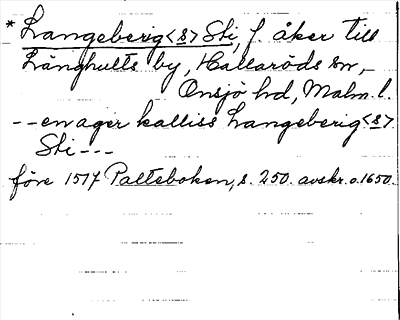 * Langeberig<s> Sti, f. åker till
Långhults by, Hallaröds sn,
Onsjö hd, Malm. l.
-- en ager kalliss Langeberig<s>
Sti ---
före 1517 Palteboken, s. 250. avskr. o. 1650.